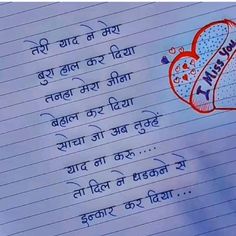 तेरी याद ने मेरा
बुरा हाल कर दिया
तनहा मेरा जीना
बेहाल कर दिया
सोचा जो अब तुम्हें
याद ना करू....
तो दिल ने धडकने से
इन्कार कर दिया...
I Miss You